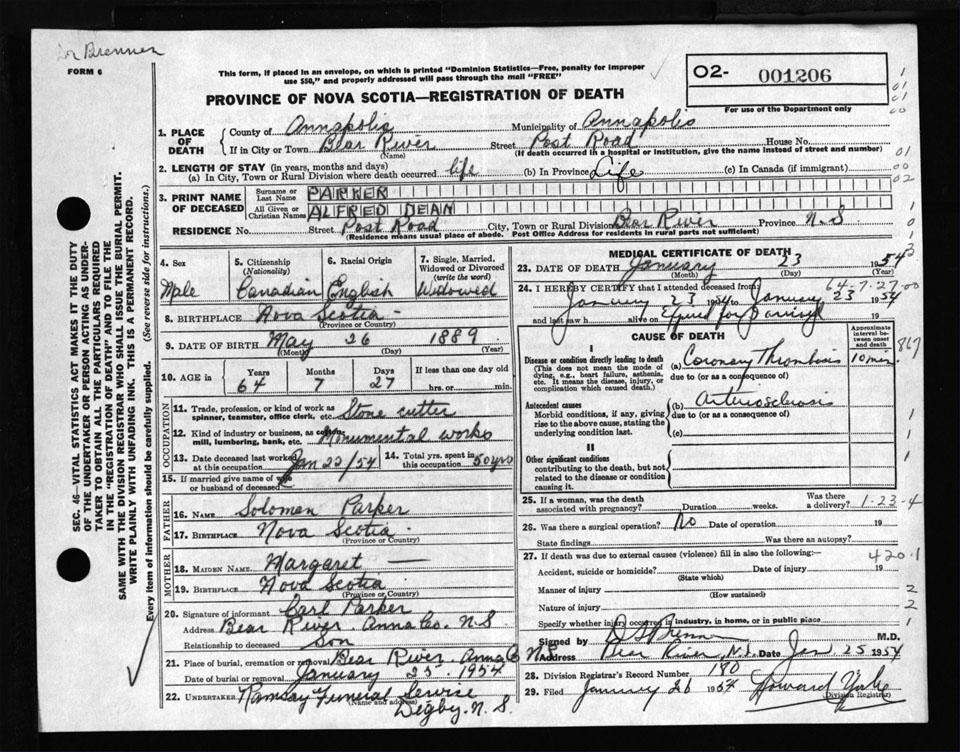 Dr Brenner
FORM 6
This form, if placed in an envelope, on which is printed "Dominion Statistics—Free, penalty for improper
use $50," and properly addressed will pass through the mail "FREE"
O2- 001206
For use of the Department only
PROVINCE OF NOVA SCOTIA—REGISTRATION OF DEATH
1. PLACE OF DEATH County of Annapolis Municipality of Annapolis
If in City or Town Bear River Street Post Road House No.
(Name) (If death occurred in a hospital or institution, give the name instead of street and number)
2. LENGTH OF STAY (in years, months and days)
(a) In City, Town or Rural Division where death occurred life (b) In Province Life (c) In Canada (if immigrant)
3. PRINT NAME OF DECEASED Surname or Last Name PARKER
All Given or Christian Names ALFRED DEAN
RESIDENCE No. Street Post Road City, Town or Rural Division Bear River Province N.S
(Residence means usual place of abode. Post Office Address for residents in rural parts not sufficient)
SEC. 46—VITAL STATISTICS ACT MAKES IT THE DUTY
OF THE UNDERTAKER OR PERSON ACTING AS UNDER-
TAKER TO OBTAIN ALL THE PARTICULARS REQUIRED
IN THE "REGISTRATION OF DEATH" AND TO FILE THE
SAME WITH THE DIVISION REGISTRAR WHO SHALL ISSUE THE BURIAL PERMIT.
WRITE PLAINLY WITH UNFADING INK. THIS IS A PERMANENT RECORD.
Every item of information should be carefully supplied. (See reverse side for instructions.)
4. Sex Male
5. Citizenship (Nationality) Canadian
6. Racial Origin English
7. Single, Married, Widowed or Divorced (write the word) Widowed
8. BIRTHPLACE Nova Scotia -
(Province or Country)
9. DATE OF BIRTH May 26 1889
(Month) (Day) (Year)
10. AGE in Years Months Days If less than one day old
64 7 27 hrs. or min.
OCCUPATION
11. Trade, profession, or kind of work as
spinner, teamster, office clerk, etc. Stone cutter
12. Kind of industry or business, as cotton
mill, lumbering, bank, etc. Monumental works
13. Date deceased last worked
at this occupation Jan 22/54
14. Total yrs. spent in
this occupation 50 yrs
15. If married give name of wife
or husband of deceased
FATHER
16. NAME Solomen Parker
17. BIRTHPLACE Nova Scotia
(Province or Country)
MOTHER
18. MAIDEN NAME Margaret —
19. BIRTHPLACE Nova Scotia
(Province or Country)
20. Signature of informant Carl Parker
Address Bear River. Anna Co. N.S.
Relationship to deceased Son
21. Place of burial, cremation or removal Bear River. Anna Co
Date of burial or removal January 25. 1954
22. UNDERTAKER Ramsay Funeral Service
(Name and address)
Digby. N.S.
MEDICAL CERTIFICATE OF DEATH
23. DATE OF DEATH January 23 1954
(Month) (Day) (Year)
64-7-27-00
24. I HEREBY CERTIFY that I attended deceased from
January 23 1954 to January 23 1954
and last saw h alive on Expired for Darrisyl
CAUSE OF DEATH
Approximate interval between onset and death
I
Disease or condition directly leading to death
(This does not mean the mode of
dying, e.g., heart failure, asthenia,
etc. It means the disease, injury, or
complication which caused death.)
(a) Coronary Thrombosis 10 min
due to (or as a consequence of)
Antecedent causes
Morbid conditions, if any, giving
rise to the above cause, stating the
underlying condition last.
(b) Arteriosclerosis
due to (or as a consequence of)
(c)
II
Other significant conditions
contributing to the death, but not
related to the disease or condition
causing it.
25. If a woman, was the death
associated with pregnancy? Duration weeks. Was there a delivery? 1-23-4
26. Was there a surgical operation? No Date of operation 19
State findings Was there an autopsy?
27. If death was due to external causes (violence) fill in also the following:— 420.1
Accident, suicide or homicide? Date of injury 19
(State which)
Manner of injury
(How sustained)
Nature of injury
Specify whether injury occurred in industry, in home, or in public place
Signed by D S Brenner M.D.
Address Bear River, N.S. Date Jan 25 1954
28. Division Registrar's Record Number 190
29. Filed January 26 1954 Howard Yorke
(Division Registrar)